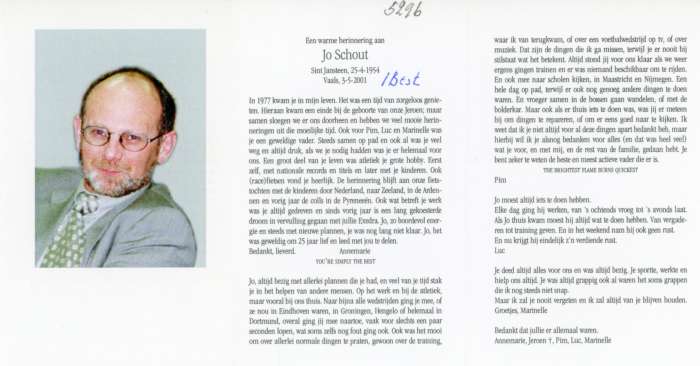 5296
Een warme herinnering aan
Jo Schout
Sint Jansteen, 25-4-1954
Vaals, 3-5-2001
/Best
In 1977 kwam je in mijn leven. Het was een tijd van zorgeloos genie-
ten. Hieraan kwam een einde bij de geboorte van onze Jeroen; maar
samen sloegen we er ons doorheen en hebben we veel mooie herin-
neringen uit die moeilijke tijd. Ook voor Pim, Luc en Marinelle was
je een geweldige vader. Steeds samen op pad en ook al was je veel
weg en altijd druk, als we je nodig hadden was je er helemaal voor
ons. Een groot deel van je leven was atletiek je grote hobby. Eerst
zelf, met nationale records en titels en later met je kinderen. Ook
(race)fietsen vond je heerlijk. De herinnering blijft aan onze fiets-
tochten met de kinderen door Nederland, naar Zeeland, in de Arden-
nen en vorig jaar de colls in de Pyreneeën. Ook wat betreft je werk
was je altijd gedreven en sinds vorig jaar is een lang gekoesterde
droom in vervulling gegaan met jullie Exedra. Jo, zo boordevol ener-
gie en steeds met nieuwe plannen, je was nog lang niet klaar. Jo, het
was geweldig om 25 jaar lief en leed met jou te delen.
Bedankt, lieverd. Annemarie
YOU'RE SIMPLY THE BEST
Jo, altijd bezig met allerlei plannen die je had, en veel van je tijd stak
je in het helpen van andere mensen. Op het werk en bij de atletiek,
maar vooral bij ons thuis. Naar bijna alle wedstrijden ging je mee, of
ze nou in Eindhoven waren, in Groningen, Hengelo of helemaal in
Dortmund, overal ging jij mee naartoe, vaak voor slechts een paar
seconden lopen, wat soms zelfs nog fout ging ook. Ook was het mooi
om over allerlei normale dingen te praten, gewoon over de training,
waar ik van terugkwam, of over een voetbalwedstrijd op tv, of over
muziek. Dat zijn de dingen die ik ga missen, terwijl je er nooit bij
stilstaat wat het betekent. Altijd stond jij voor ons klaar als we weer
ergens gingen trainen en er was niemand beschikbaar om te rijden.
En ook mee naar scholen kijken, in Maastricht en Nijmegen. Een
hele dag op pad, terwijl er ook nog genoeg andere dingen te doen
waren. En vroeger samen in de bossen gaan wandelen, of met de
bolderkar. Maar ook als er thuis iets te doen was, was jij er meteen
bij om dingen te repareren, of om er eens goed naar te kijken. Ik
weet dat ik je niet altijd voor al deze dingen apart bedankt heb, maar
hierbij wil ik je alsnog bedanken voor alles (en dat was heel veel)
wat je voor, en met mij, en de rest van de familie, gedaan hebt. Je
bent zeker te weten de beste en meest actieve vader die er is.
THE BRIGHTEST FLAME BURNS QUICKEST
Pim
Jo moest altijd iets te doen hebben.
Elke dag ging hij werken, van 's ochtends vroeg tot 's avonds laat.
Als Jo thuis kwam moest hij altijd wat te doen hebben. Van vergade-
ren tot training geven. En in het weekend nam hij ook geen rust.
En nu krijgt hij eindelijk z'n verdiende rust.
Luc
Je deed altijd alles voor ons en was altijd bezig. Je sportte, werkte en
hielp ons altijd. Je was altijd grappig ook al waren het soms grappen
die ik nog steeds niet snap.
Maar ik zal je nooit vergeten en ik zal altijd van je blijven houden.
Groetjes, Marinelle
Bedankt dat jullie er allemaal waren.
Annemarie, Jeroen †, Pim, Luc, Marinelle